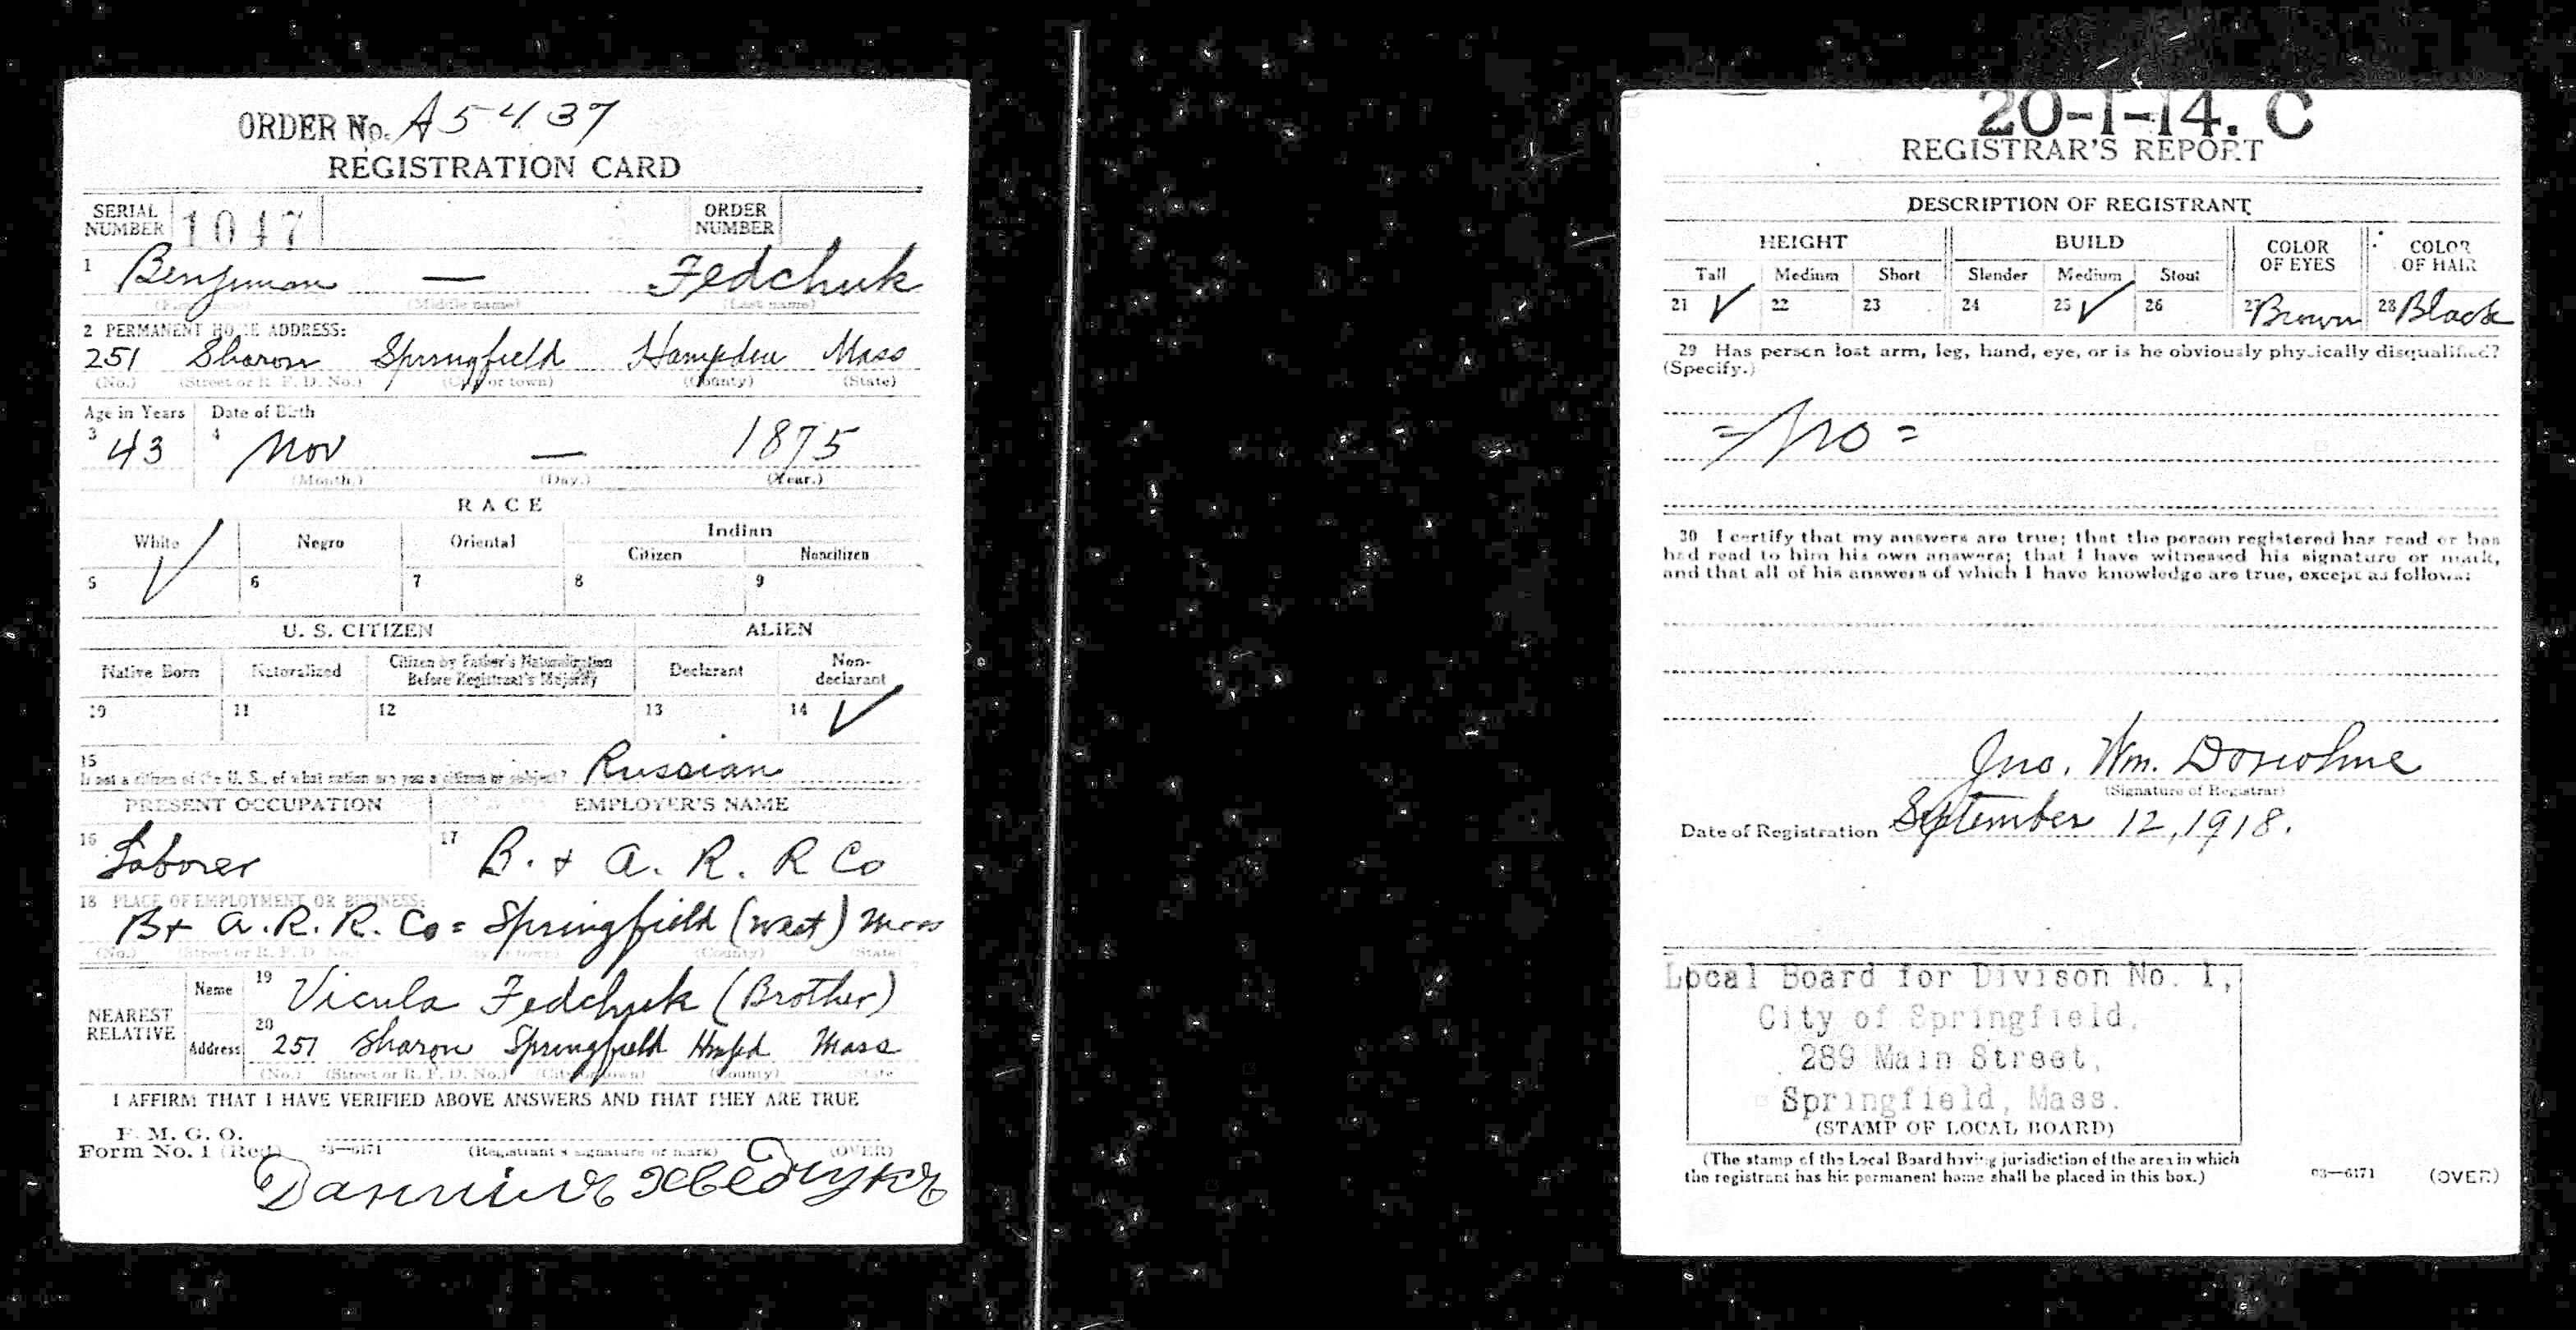 ORDER No. A5437
REGISTRATION CARD
SERIAL NUMBER 1047 ORDER NUMBER
1 Benjiman — Fedchuk
(Middle name) (Last name)
2 PERMANENT HOME ADDRESS:
251 Sharon Springfield Hampden Mass
(No.) (Street or R. F. D. No.) (City or town) (County) (State)
Age in Years Date of Birth
3 43 4 Nov — 1875
(Month.) (Day.) (Year.)
RACE
White Negro Oriental Indian
Citizen Noncitizen
5 ✓ 6 7 8 9
U. S. CITIZEN ALIEN
Native Born Naturalized Citizen by Father's Naturalization Before Registrant's Majority Declarant Non-declarant
10 11 12 13 14 ✓
15
If not a citizen of the U. S., of what nation are you a citizen or subject? Russian
PRESENT OCCUPATION EMPLOYER'S NAME
16 Laborer 17 B. + A. R. R Co
18 PLACE OF EMPLOYMENT OR BUSINESS:
B + A. R. R. Co = Springfield (West) Mass
(No.) (Street or R. F. D. No.) (City or town) (County) (State)
NEAREST RELATIVE Name 19 Vicula Fedchuk (Brother)
Address 20 251 Sharon Springfield Hmpd Mass
(No.) (Street or R. F. D. No.) (City or town) (County) (State
I AFFIRM THAT I HAVE VERIFIED ABOVE ANSWERS AND THAT THEY ARE TRUE
P. M. G. O.
Form No. 1 (Red) 03—6171 (Registrant's signature or mark) (OVER)
20-1-14. C
REGISTRAR'S REPORT
DESCRIPTION OF REGISTRANT
HEIGHT BUILD COLOR OF EYES COLOR OF HAIR
Tall Medium Short Slender Medium Stout
21 ✓ 22 23 24 25 ✓ 26 27 Brown 28 Black
29 Has person lost arm, leg, hand, eye, or is he obviously physically disqualified?
(Specify.)
= No =
30 I certify that my answers are true; that the person registered has read or has
had read to him his own answers; that I have witnessed his signature or mark,
and that all of his answers of which I have knowledge are true, except as follows:
Jno. Wm. Donohue
(Signature of Registrar)
Date of Registration September 12, 1918.
Local Board for Divison No. 1,
City of Springfield,
289 Main Street,
Springfield, Mass.
(STAMP OF LOCAL BOARD)
(The stamp of the Local Board having jurisdiction of the area in which
the registrant has his permanent home shall be placed in this box.)
03—6171 (OVER)